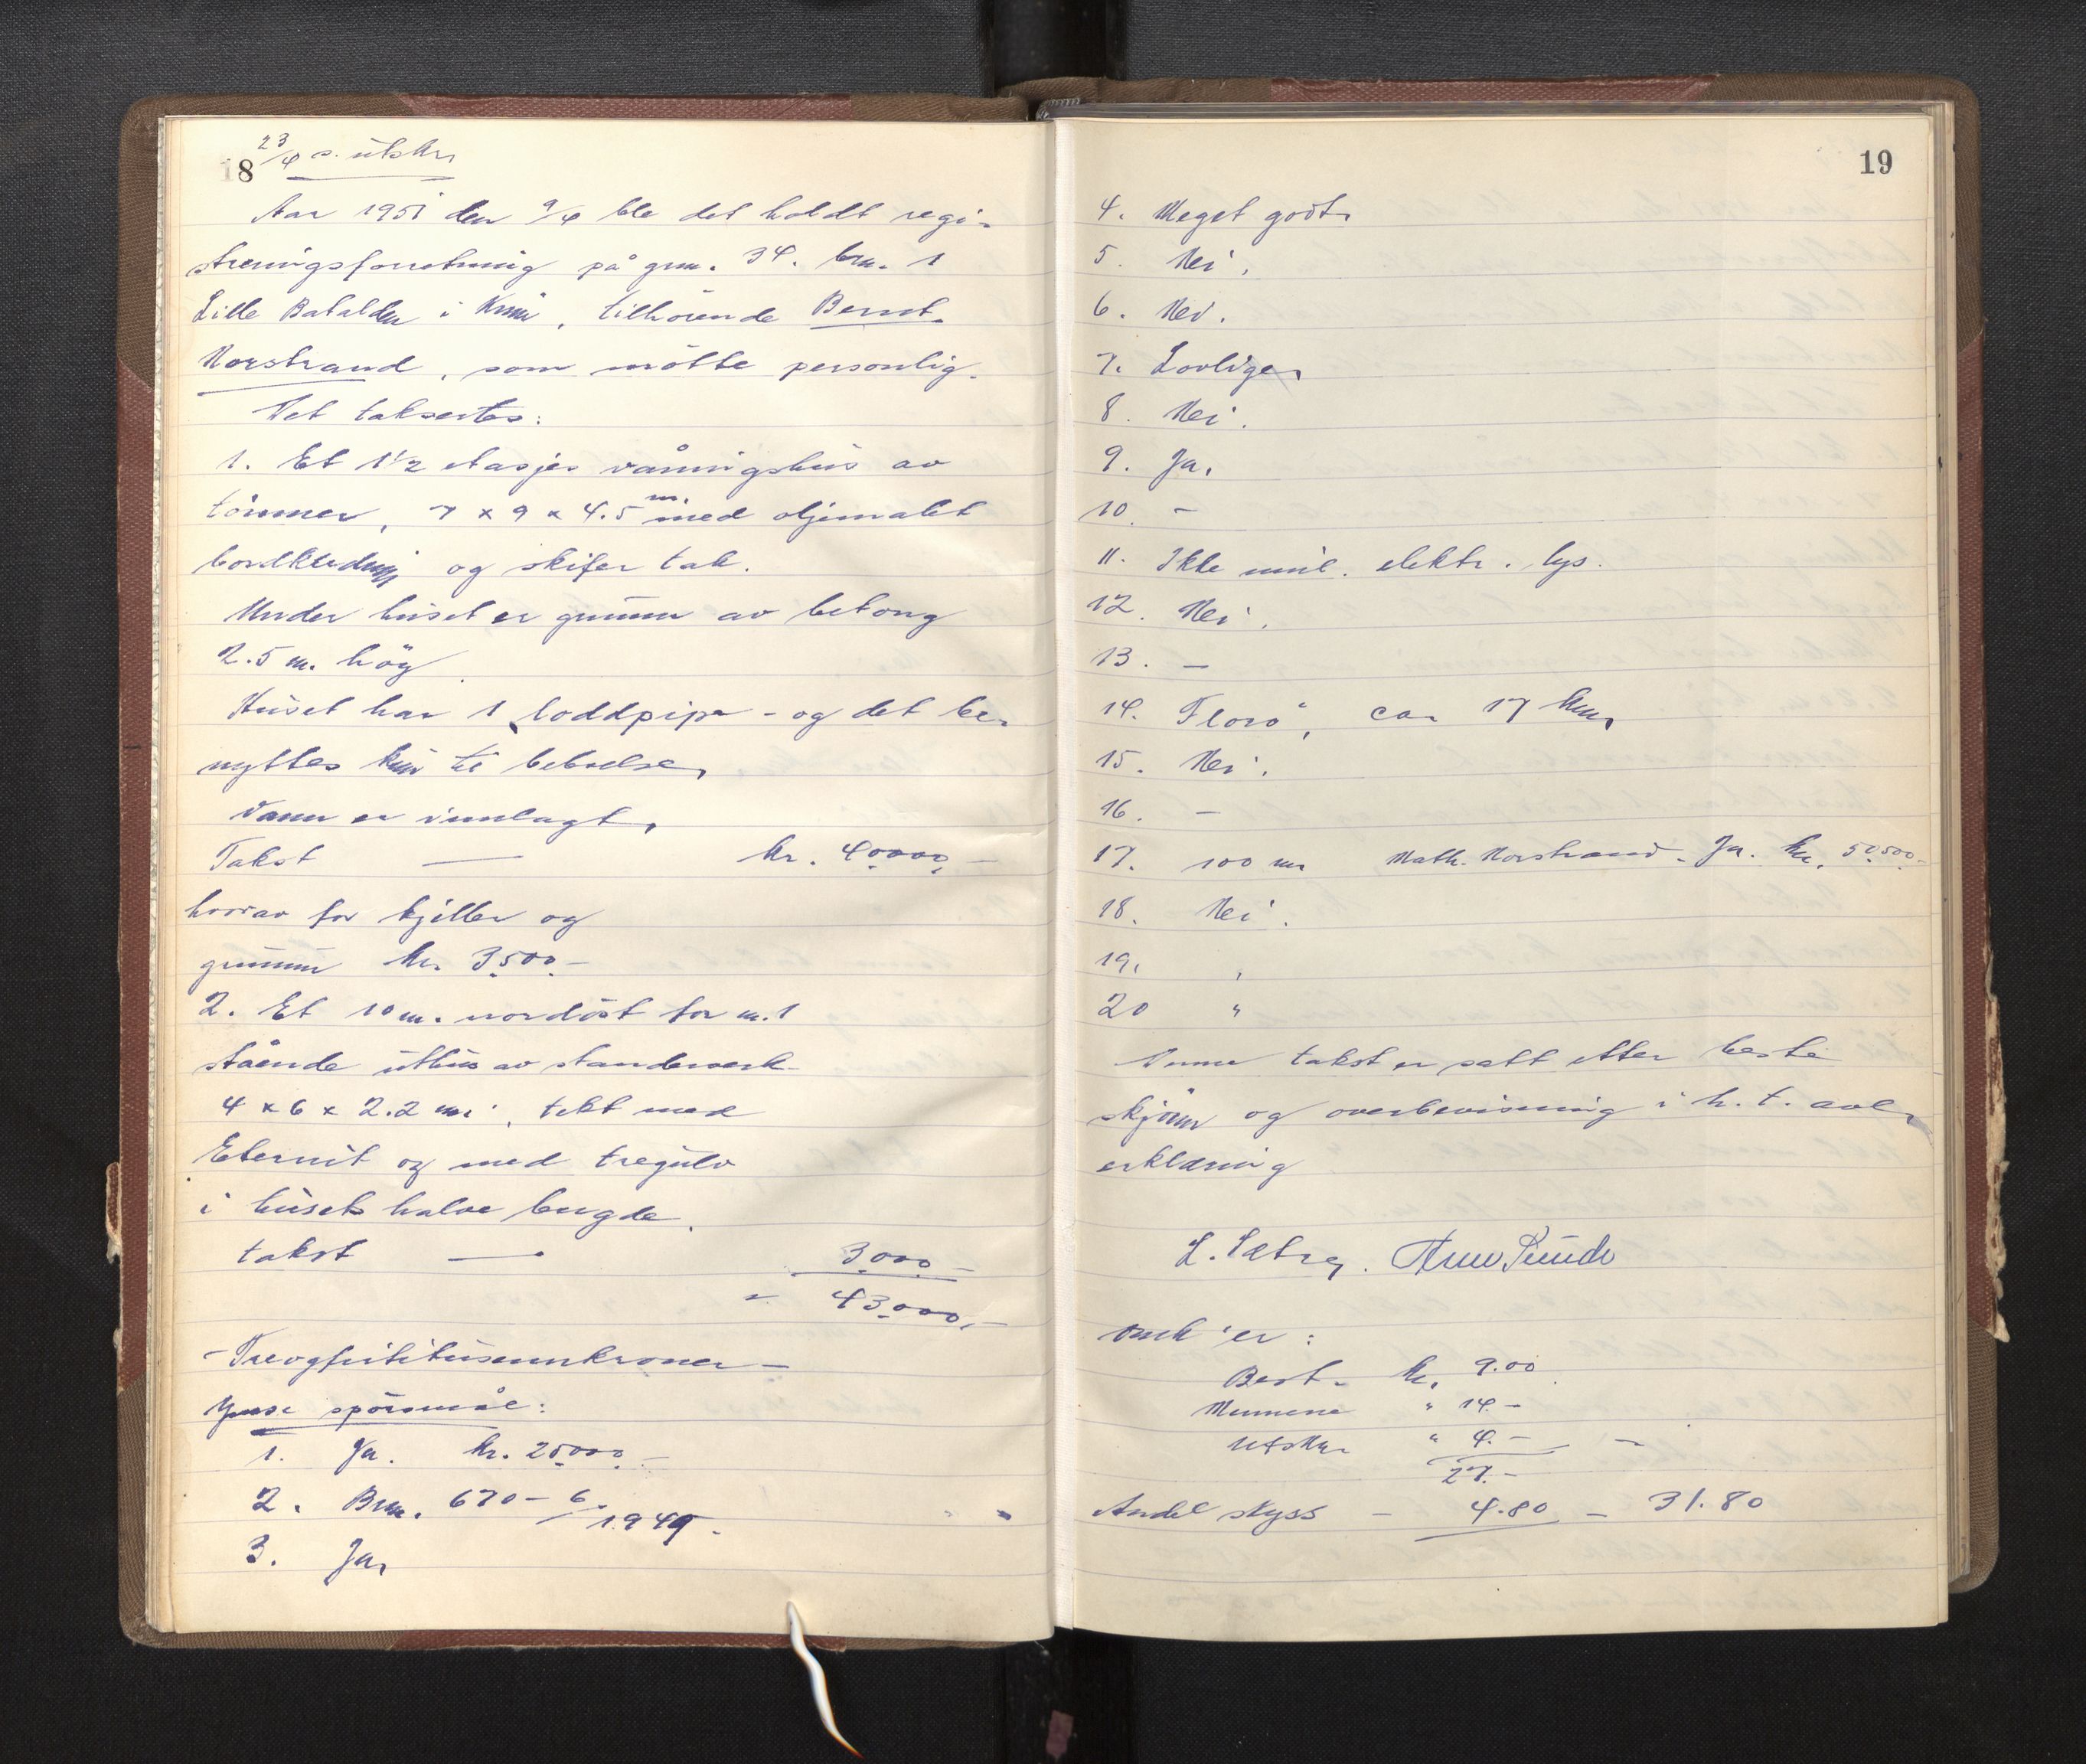 18 23/4 s. utskr.
Aar 1951 den 9/4 ble det holdt regi-
streringsforretning på gnr. 34. bnr. 1
Lille Batalden i Kinn, tilhörende Bernt
Norstrand, som mötte personlig.
Det taksertes:
1. Et 1 1/2 etasjes våningshus av
tömmer, 7 x 9 x 4.5 m. med oljemalet
bordkledning og skifer tak.
Under huset er grunnmur av betong
2.5 m. höy.
Huset har 1 loddpipe - og det be-
nyttes kun til beboelse,
Vann er innlagt,
Takst — kr. 40000,-
hvorav for kjeller og
grunnmur kr. 3500.-
2. Et 10 m. nordöst for nr. 1
stående uthus av standerverk
4 x 6 x 2.2 m., tekt med
Eternit og med tregulv
i husets halve lengde.
takst — 3000.-
" 43000,-
- Treogførtitusennkroner -
Ymse spörsmål:
1. Ja. kr. 25000.-
2. Bnr. 670 - 6/ 1949.
3. Ja,
19
4. Meget godt.
5. Nei.
6. Nei.
7. Lovlige,
8. Nei.
9. Ja,
10. -
11. Ikke innl. elektr. lys.
12. Nei.
13. —
14. Florö, ca. 17 km,
15. Nei.
16. —
17. 100 m Math. Norstrand. Ja. kr. 50500.-
18. Nei.
19. "
20 "
Denne takst er satt etter beste
skjönn og overbevisning i h. t. avl.
erklæring
L. Sætre. Arne Sunde
Omk'er:
Best. kr. 9.00
Mennene " 14.-
Utskr. " 4.- -
27.-
Andel skyss - 4.80 - 31.80